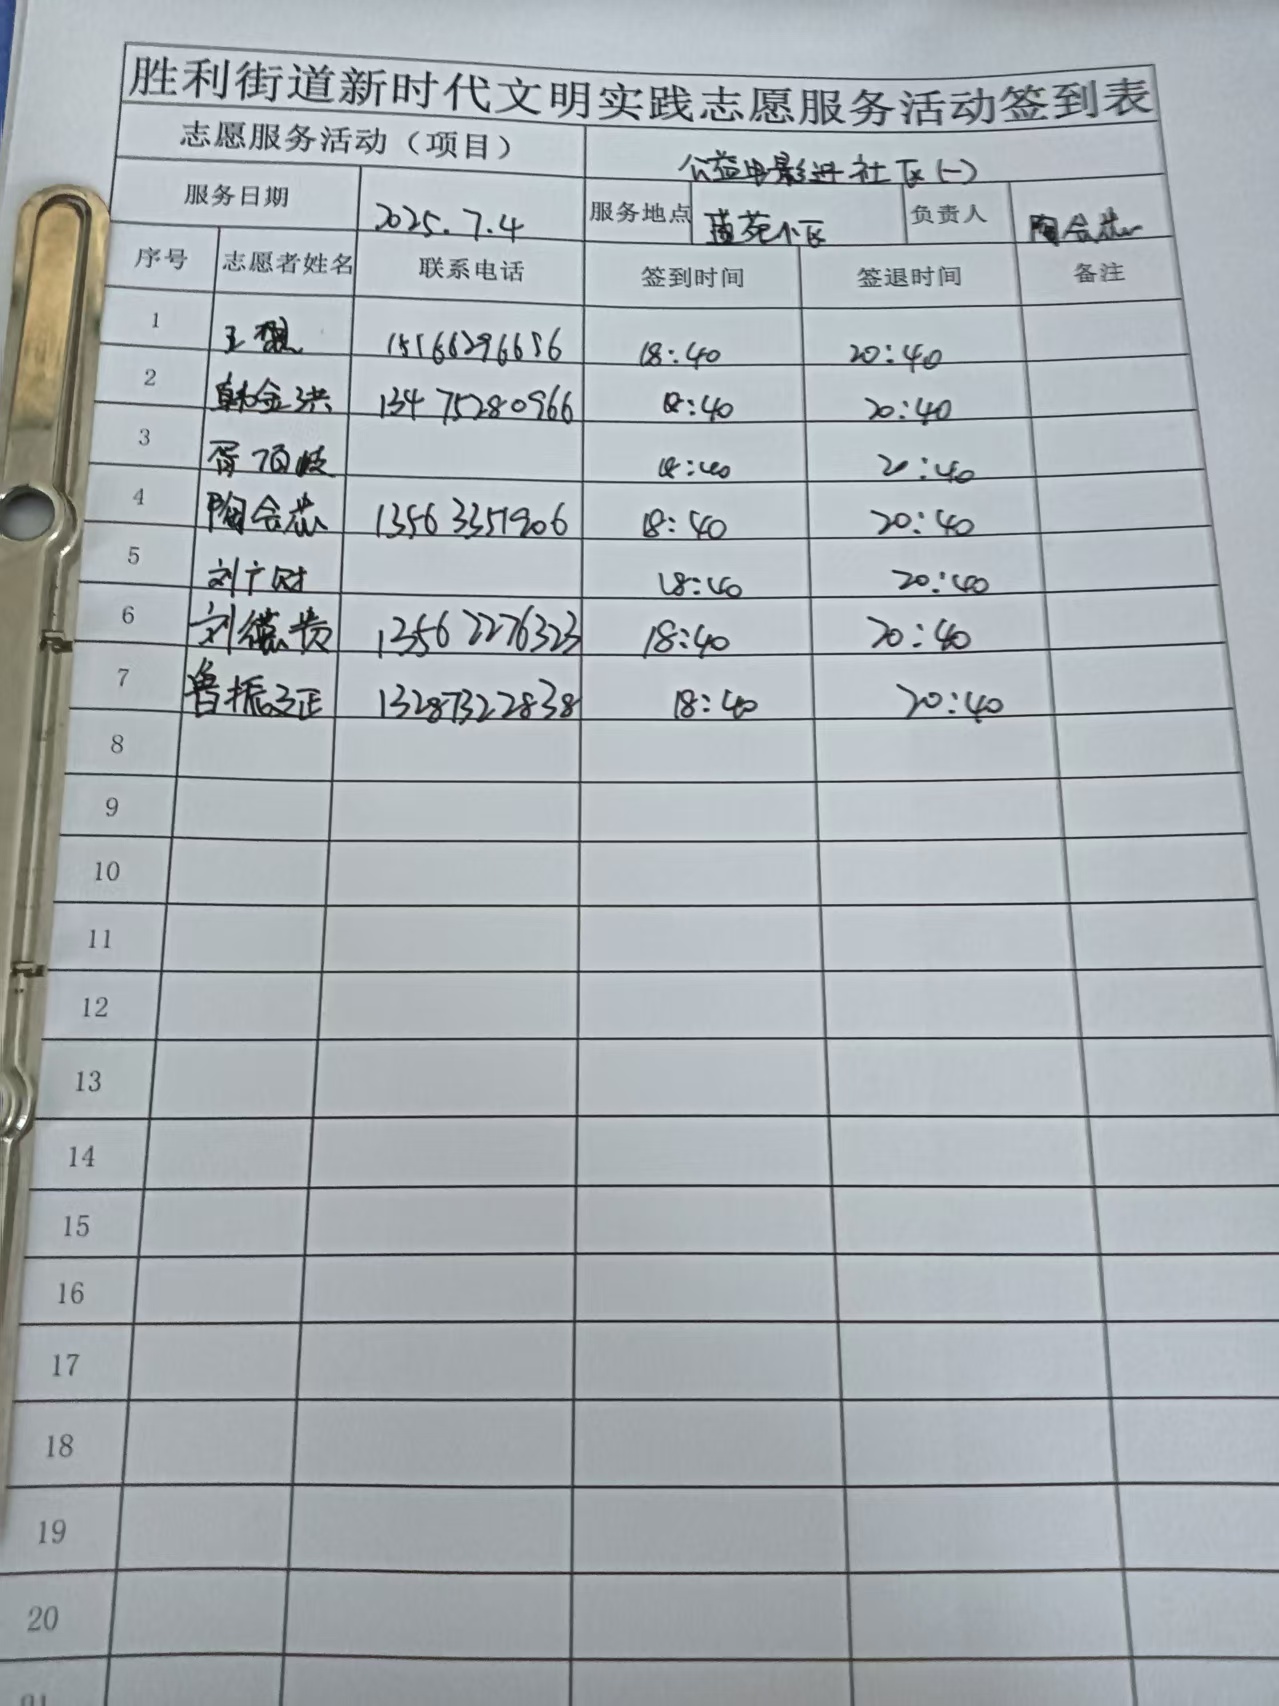 胜利街道新时代文明实践志愿服务活动签到表
志愿服务活动（项目） 公益电影进社区(一)
服务日期 2025.7.4 服务地点 苑小区 负责人 陶会芯
序号 志愿者姓名 联系电话 签到时间 签退时间 备注
1 王 15166296656 18:40 20:40
2 韩金洪 13475280966 18:40 20:40
3 胥 18:40 20:40
4 陶会芯 13563357906 18:40 20:40
5 刘广财 18:40 20:40
6 刘德贵 13562276323 18:40 20:40
7 鲁振 13287322838 18:40 20:40
8
9
10
11
12
13
14
15
16
17
18
19
20
21